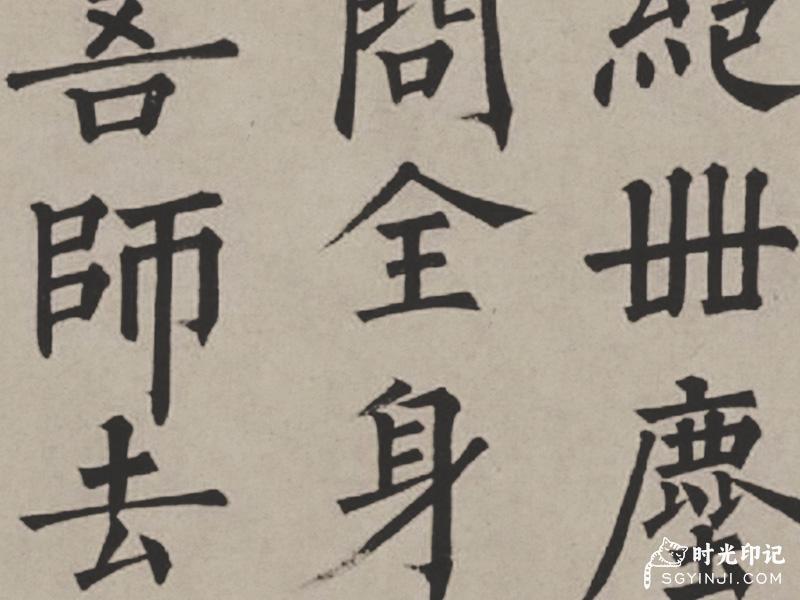 絕丗塵
問全身
吾師去
时光印记
SGYINJI.COM